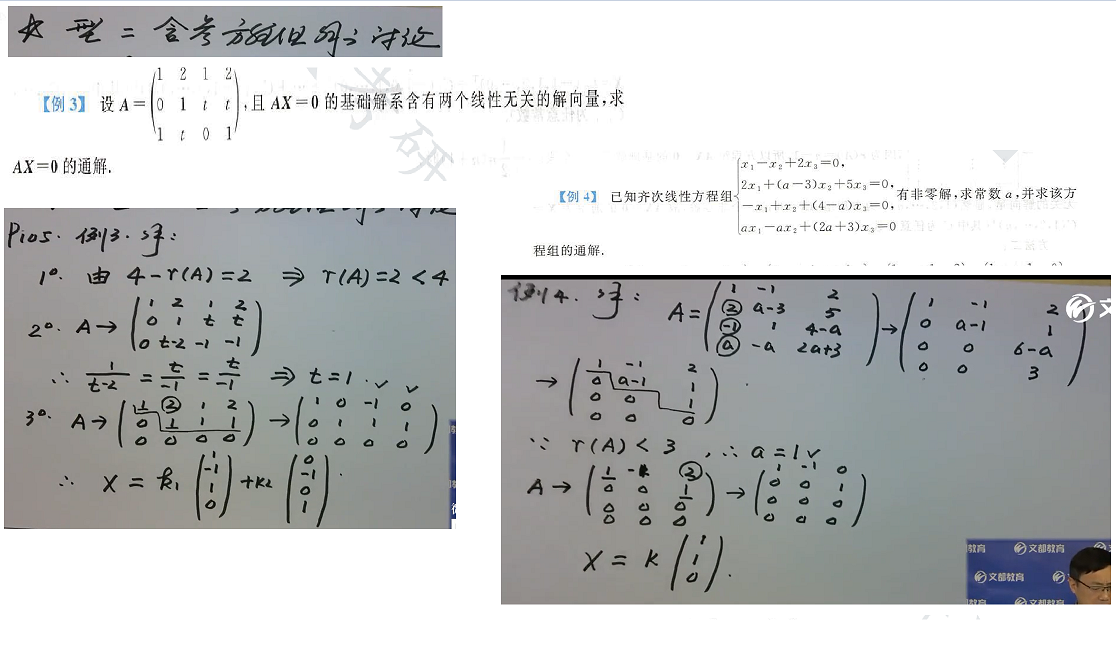 ☆ 型二 含参方程组的讨论
【例3】 设 A=
1 2 1 2
0 1 t t
1 t 0 1
,且 AX=0 的基础解系含有两个线性无关的解向量,求
AX=0 的通解.
例3. 解:
1°. 由 4-r(A)=2 ⇒ r(A)=2<4
2°. A→
1 2 1 2
0 1 t t
0 t-2 -1 -1
∴ 1/(t-2) = t/(-1) = t/(-1) ⇒ t=1.
3°. A→
1 ② 1 2
0 1 1 1
0 0 0 0
→
1 0 -1 0
0 1 1 1
0 0 0 0
∴ X = k₁
1
-1
1
0
+k₂
0
-1
0
1
考研
【例4】 已知齐次线性方程组
x₁-x₂+2x₃=0,
2x₁+(a-3)x₂+5x₃=0,
-x₁+x₂+(4-a)x₃=0,
ax₁-ax₂+(2a+3)x₃=0
有非零解,求常数 a,并求该方
程组的通解.
例4. 解:
A=
1 -1 2
② a-3 5
-1 1 4-a
a -a 2a+3
→
1 -1 2
0 a-1 1
0 0 6-a
0 0 3
→
1 -1 2
0 a-1 1
0 0 1
0 0 0
∵ r(A)<3, ∴ a=1 ✓
A→
1 -1 ②
0 0 1
0 0 0
0 0 0
→
1 -1 0
0 0 1
0 0 0
0 0 0
X = k
1
1
0
.
文
教育 文都教育
文都教育
教育 文都教育